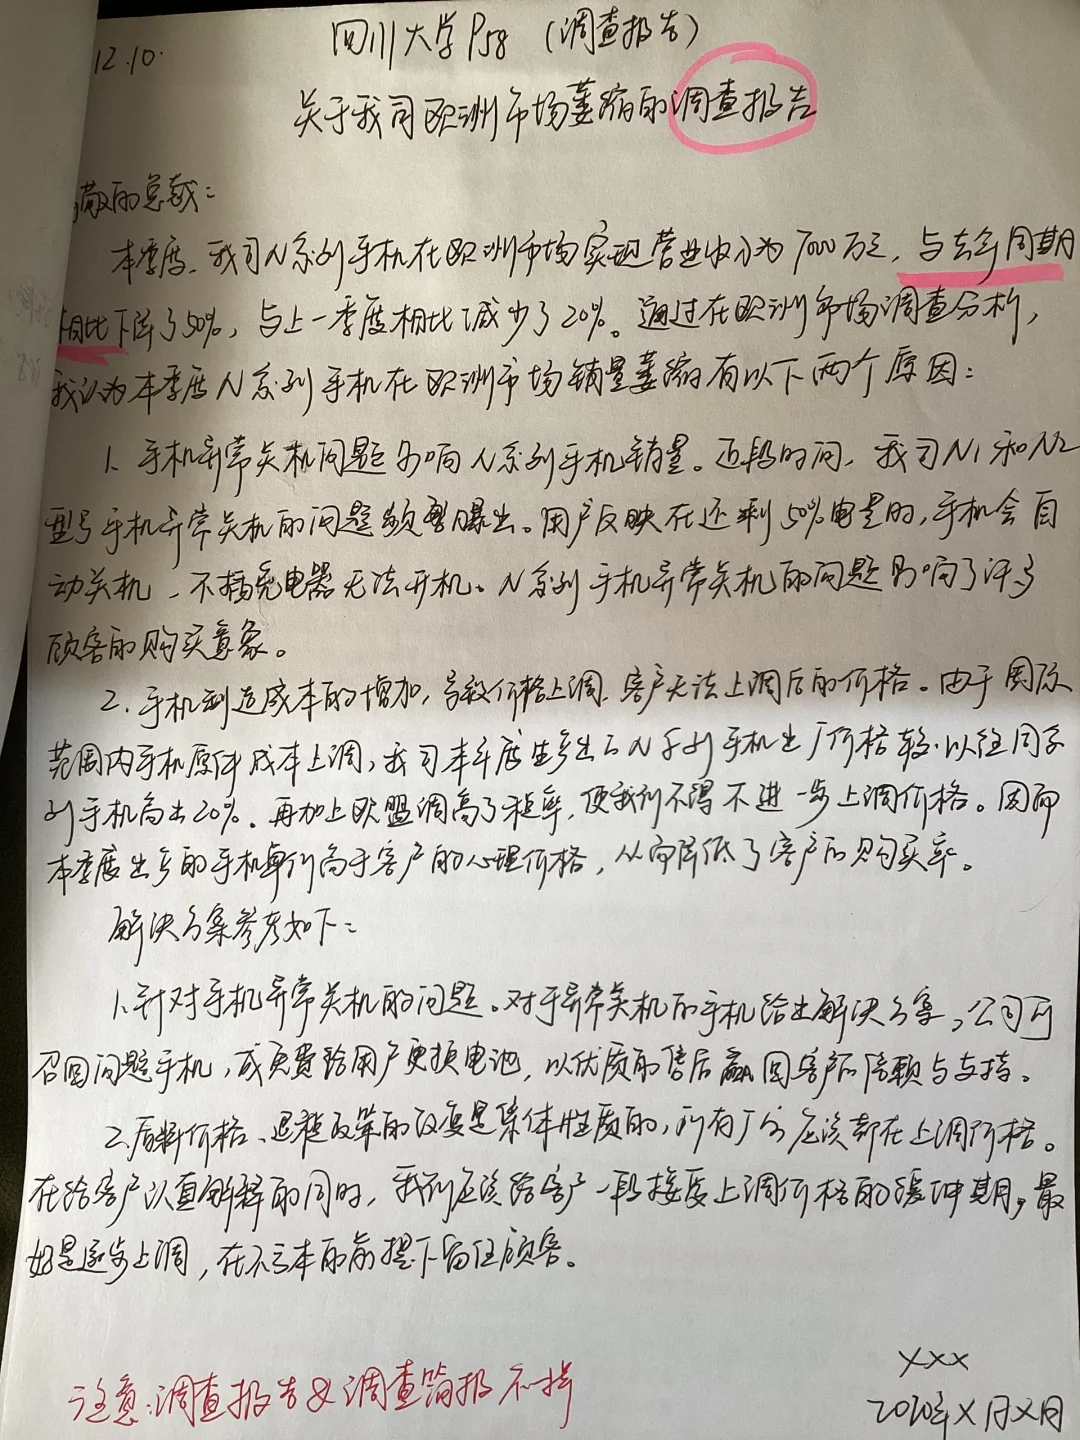 12.10.
四川大学P58（调查报告）
关于我司欧洲市场萎缩的调查报告
敬的总裁：
本季度，我司N系列手机在欧洲市场实现营业收入为7000万元，与去年同期
相比下降了50%，与上一季度相比减少了20%。通过在欧洲市场调查分析，
我认为本季度N系列手机在欧洲市场销量萎缩有以下两个原因：
1、手机异常关机问题影响N系列手机销量。近段时间，我司N1和N2
型号手机异常关机的问题频繁曝出。用户反映在还剩50%电量时，手机会自
动关机，不插充电器无法开机。N系列手机异常关机的问题影响了许多
顾客的购买意象。
2.手机制造成本的增加，导致价格上调，客户无法上调后的价格。由于国际
范围内手机原件成本上调，我司本季度生产出的N系列手机出厂价格较以往同系
列手机高出20%，再加上欧盟调高了税率，使我们不得不进一步上调价格。因而
本季度出产的手机单价高于客户的心理价格，从而降低了客户的购买率。
解决方案参考如下：
1.针对手机异常关机的问题。对于异常关机的手机给出解决方案，公司可
召回问题手机，或免费给用户更换电池，以优质的售后赢回客户的信赖与支持。
2.原料价格、退税政策的改变是集体性质的，所有厂家应该都在上调价格。
在给客户认真解释的同时，我们应该给客户一段接受上调价格的缓冲期，最
好是逐步上调，在不亏本的前提下留住顾客。
XXX
2020年X月X日
注意：调查报告&调查简报不一样